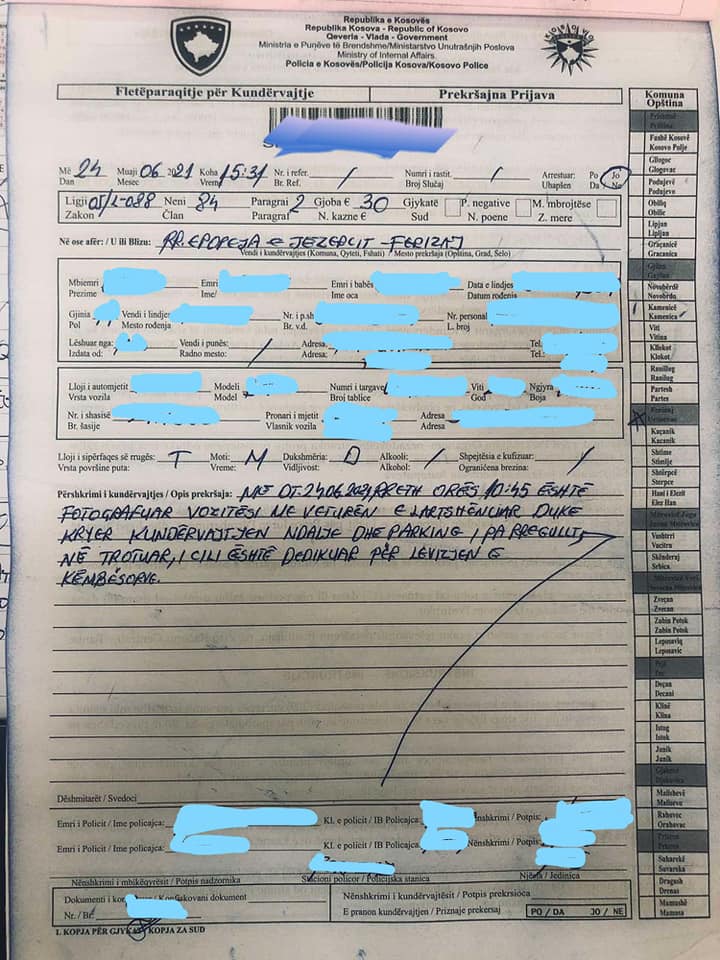 Republika e Kosovës
Republika Kosova - Republic of Kosovo
Qeveria - Vlada - Government
Ministria e Punëve të Brendshme/Ministarstvo Unutrašnjih Poslova
Ministry of Internal Affairs.
Policia e Kosovës/Policija Kosova/Kosovo Police
KOSOVO
Fletëparaqitje për Kundërvajtje Prekršajna Prijava
Më 24 Muaji 06 2021 Koha 15:31 Nr. i refer. / Numri i rastit. / Arrestuar: Po Jo
Dan Mesec Vreme Br. Ref. Broj Slučaj Uhapšen Da Ne
Ligji 05/L-088 Neni 84 Paragraf 2 Gjoba € 30 Gjykatë P. negative M. mbrojtëse
Zakon Član Paragraf N. kazne € Sud N. poene Z. mere
Në ose afër: / U ili Blizu: RR. EPOPEJA E JEZERCIT - FERIZAJ
Vendi i kundërvajtjes (Komuna, Qyteti, Fshati) / Mesto prekršaja (Opština, Grad, Selo)
Mbiemri Emri Emri i babës Data e lindjes
Prezime Ime/ Ime oca Datum rođenja
Gjinia Vendi i lindjes Nr. i p.sh Nr. personal
Pol Mesto rođenja Br. v.d. L. broj
Lëshuar nga: Vendi i punës: / Adresa Tel.
Izdata od: Radno mesto: Adresa: Tel.:
Lloji i automjetit Modeli Numri i targave Viti Ngjyra
Vrsta vozila Model Broj tablice God Boja
Nr. i shasisë Pronari i mjetit Adresa
Br. šasije Vlasnik vozila Adresa
Lloji i sipërfaqes së rrugës: T Moti: M Dukshmëria: D Alkooli: / Shpejtësia e kufizuar: /
Vrsta površine puta: Vreme: Vidljivost: Alkohol: Ograničena brezina:
Përshkrimi i kundërvajtjes / Opis prekršaja: MË DT. 24.06.2021 RRETH ORËS 10:45 ËSHTË
FOTOGRAFUAR VOZITËSI ME VETURËN E LARTSHËNUAR DUKE
KRYER KUNDËRVAJTJEN NDALJE DHE PARKING I PARREGULLT,
NË TROTUAR, I CILI ËSHTË DEDIKUAR PËR LËVIZJEN E
KËMBËSORVE.
Dëshmitarët / Svedoci
Emri i Policit / Ime policajca: Kl. e policit / IB Policajca: Nënshkrimi / Potpis:
Emri i Policit / Ime policajca: Kl. e policit / IB Policajca: Nënshkrimi / Potpis:
Nënshkrimi i mbikëqyrësit / Potpis nadzornika Stacioni policor / Policijska stanica Njësia / Jedinica
Dokumenti i / Konfiskovani dokument Nënshkrimi i kundërvajtësit / Potpis prekrsioca
Nr. / Br. E pranon kundërvajtjen / Priznaje prekersaj PO / DA JO / NE
I. KOPJA PËR GJYKATË KOPJA ZA SUD
Komuna
Opština
Fushë Kosovë
Kosovo Polje
Gllogoc
Glogovac
Podujevë
Podujevo
Obiliq
Obilic
Lipjan
Lipljan
Graçanicë
Gracanica
Novobërdë
Novobrdo
Kamenicë
Kamenica
Viti
Vitina
Kllokot
Klokot
Ranillug
Ranilug
Partesh
Partes
Kaçanik
Kacanik
Shtime
Stimlje
Shtërpcë
Sterpce
Hani i Elezit
Elez Han
Vushtrri
Vucitrn
Skënderaj
Srbica
Zveçan
Zvecan
Zubin Potok
Zubin Potok
Leposaviq
Leposavic
Deçan
Decani
Klinë
Klina
Istog
Istok
Junik
Junik
Malishevë
Malisevo
Rahovec
Orahovac
Suharekë
Suvareka
Dragash
Mamushë
Mamusa